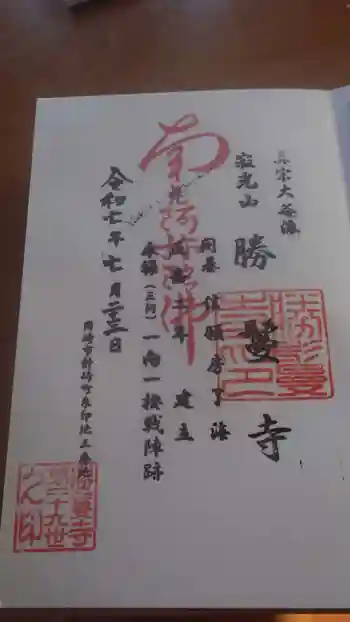 真宗大谷派
寂光山 勝鬘寺
開基 信願房了海
建立
南無阿弥陀佛
永禄(三河)一向一揆戦陣跡
令和七年七月二十三日
岡崎市針崎町朱印地三番地
勝鬘寺
第二十九世
之印